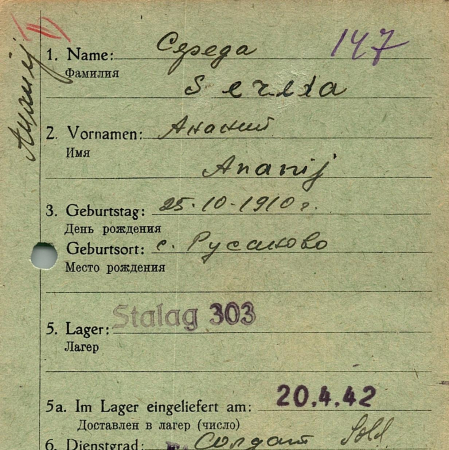 147
1. Name: Середа
Фамилия
Sereda
2. Vornamen: Ананий
Имя
Ananij
3. Geburtstag: 25.10.1910 г.
День рождения
Geburtsort: с. Русаково
Место рождения
5. Lager: Stalag 303
Лагер
5a. Im Lager eingeliefert am: 20.4.42
Доставлен в лагер (число)
6. Dienstgrad: Солдат Sold